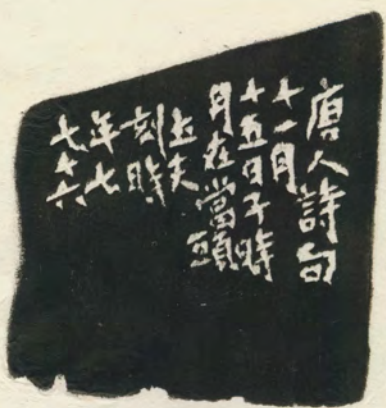 唐人詩句
十一月
十五日子時
月在當頭
夫
刻時
年七
七十六